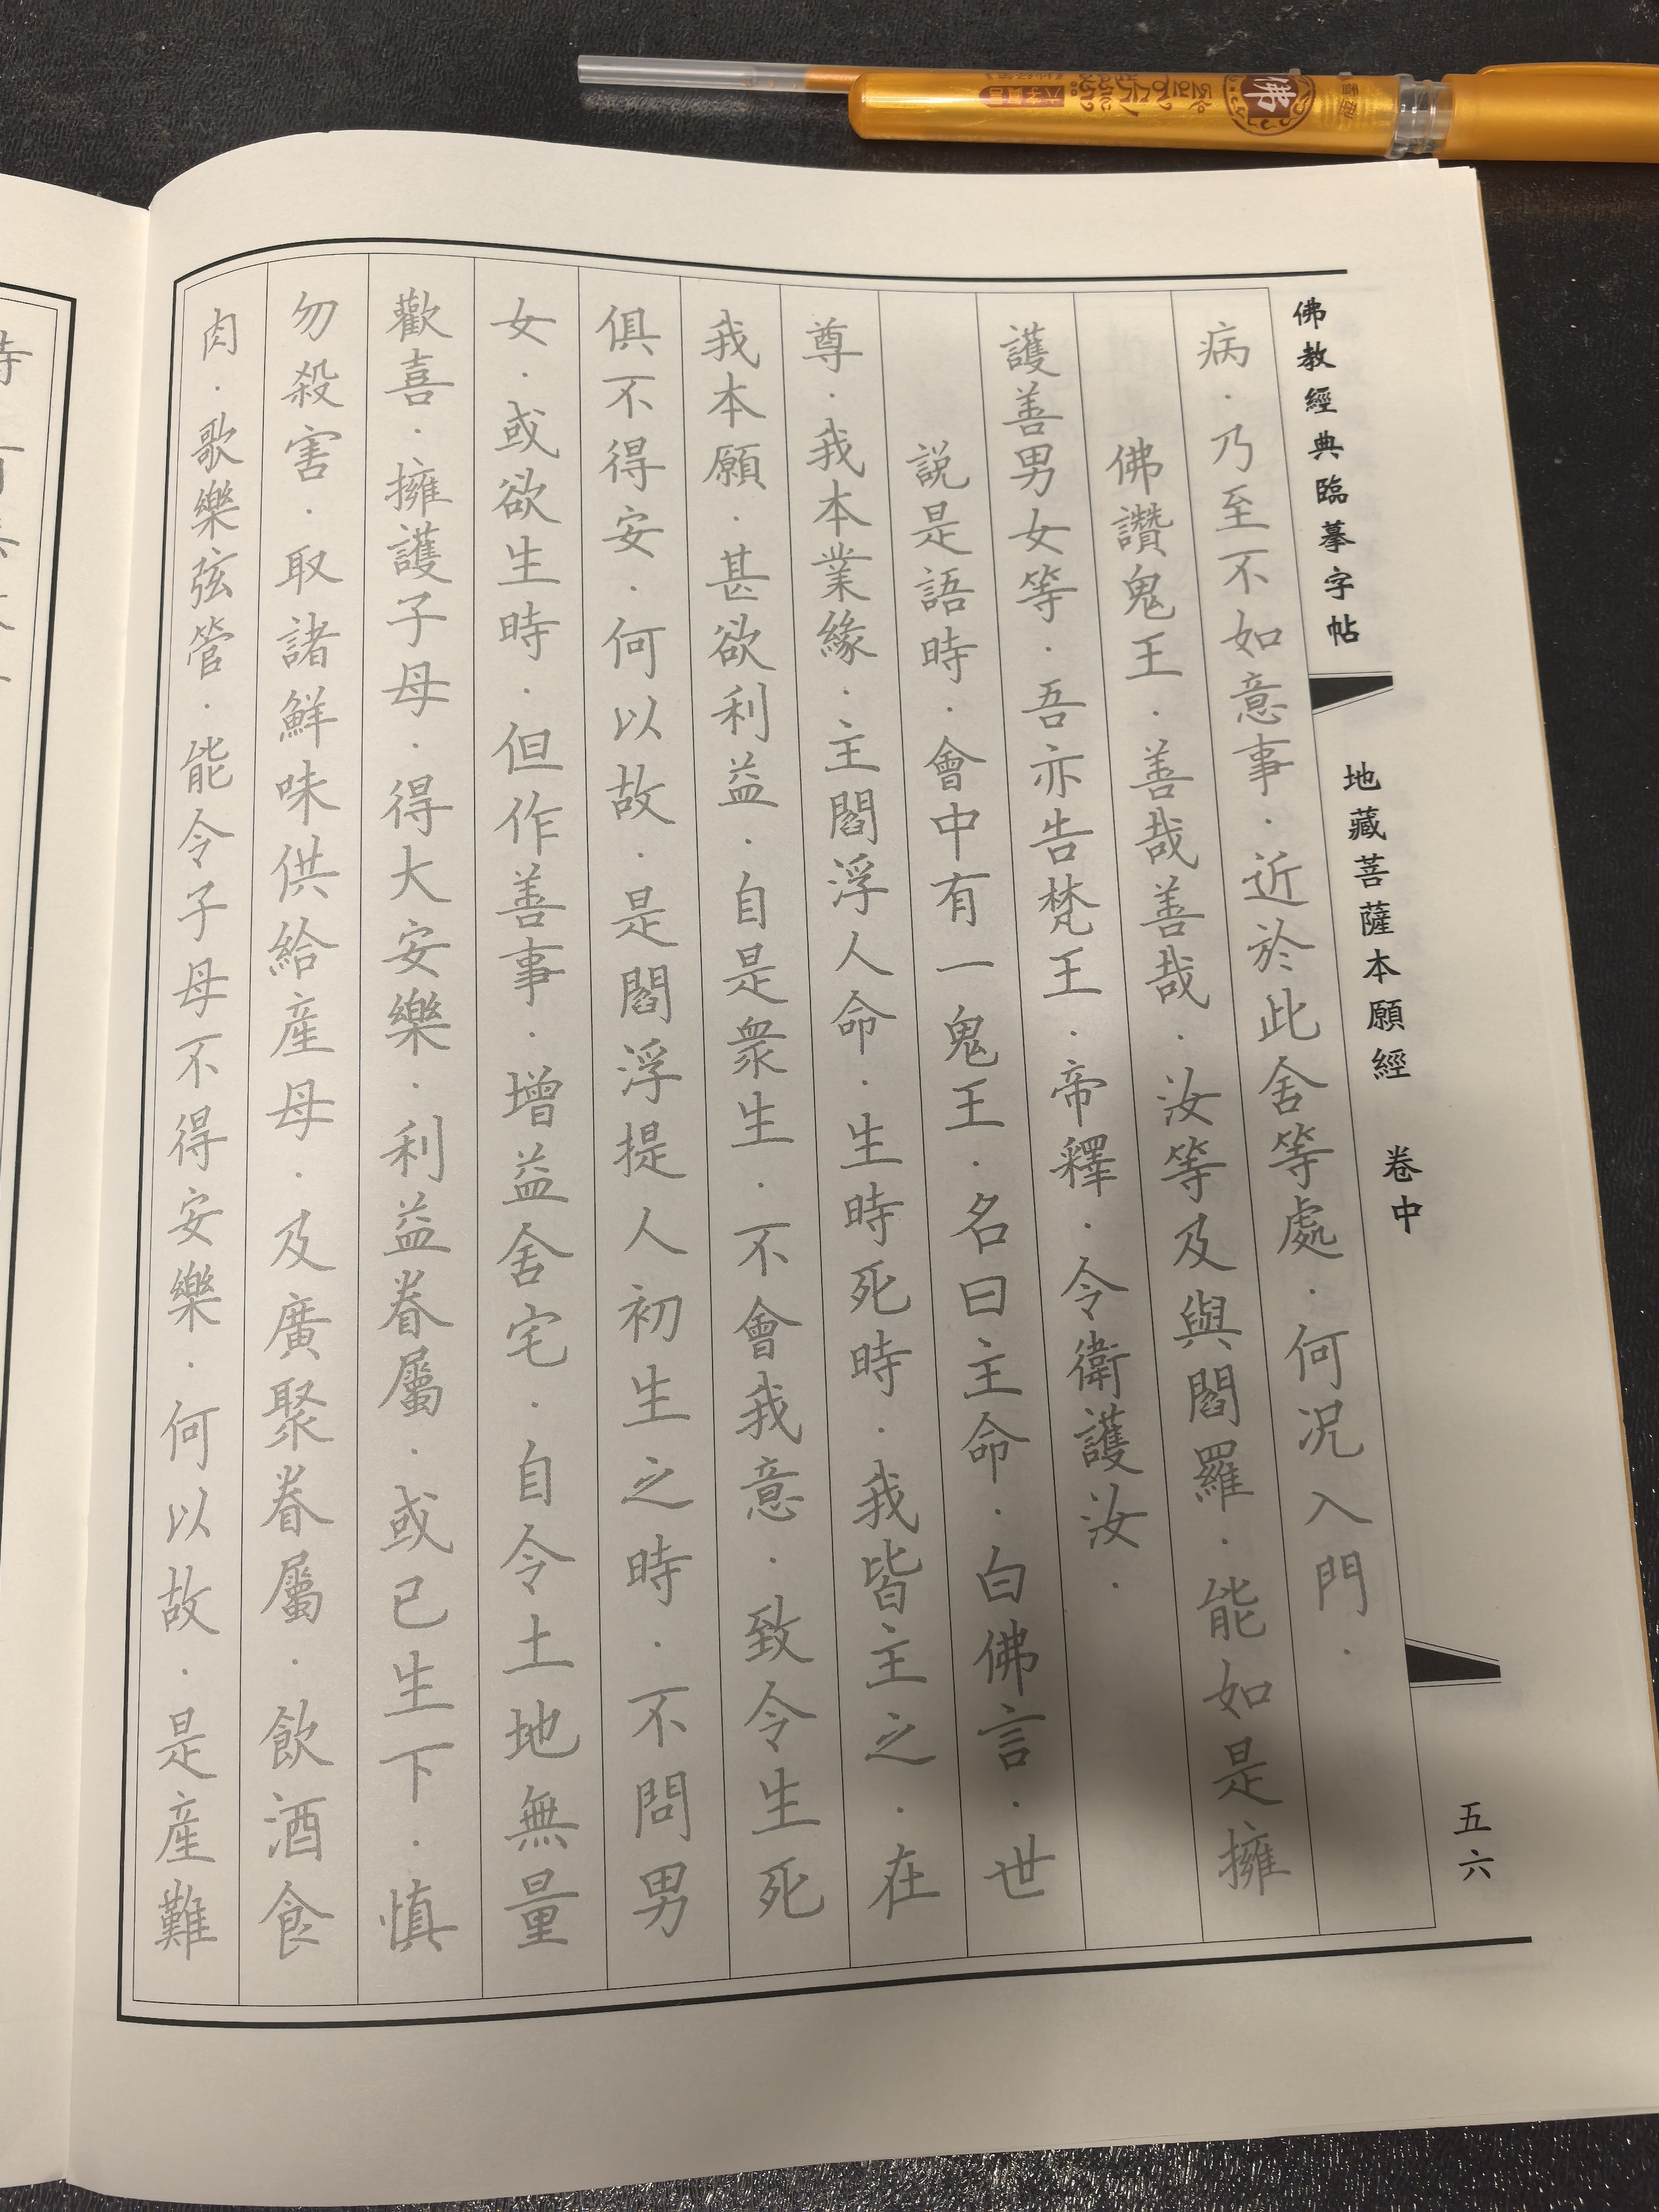 佛教經典臨摹字帖
地藏菩薩本願經 卷中
五六
病．乃至不如意事．近於此舍等處．何況入門．
佛讚鬼王．善哉善哉．汝等及與閻羅．能如是擁
護善男女等．吾亦告梵王．帝釋．令衛護汝．
說是語時．會中有一鬼王．名曰主命．白佛言．世
尊．我本業緣．主閻浮人命．生時死時．我皆主之．在
我本願．甚欲利益．自是眾生．不會我意．致令生死
俱不得安．何以故．是閻浮提人初生之時．不問男
女．或欲生時．但作善事．增益舍宅．自令土地無量
歡喜．擁護子母．得大安樂．利益眷屬．或已生下．慎
勿殺害．取諸鮮味供給產母．及廣聚眷屬．飲酒食
肉．歌樂弦管．能令子母不得安樂．何以故．是產難
佛